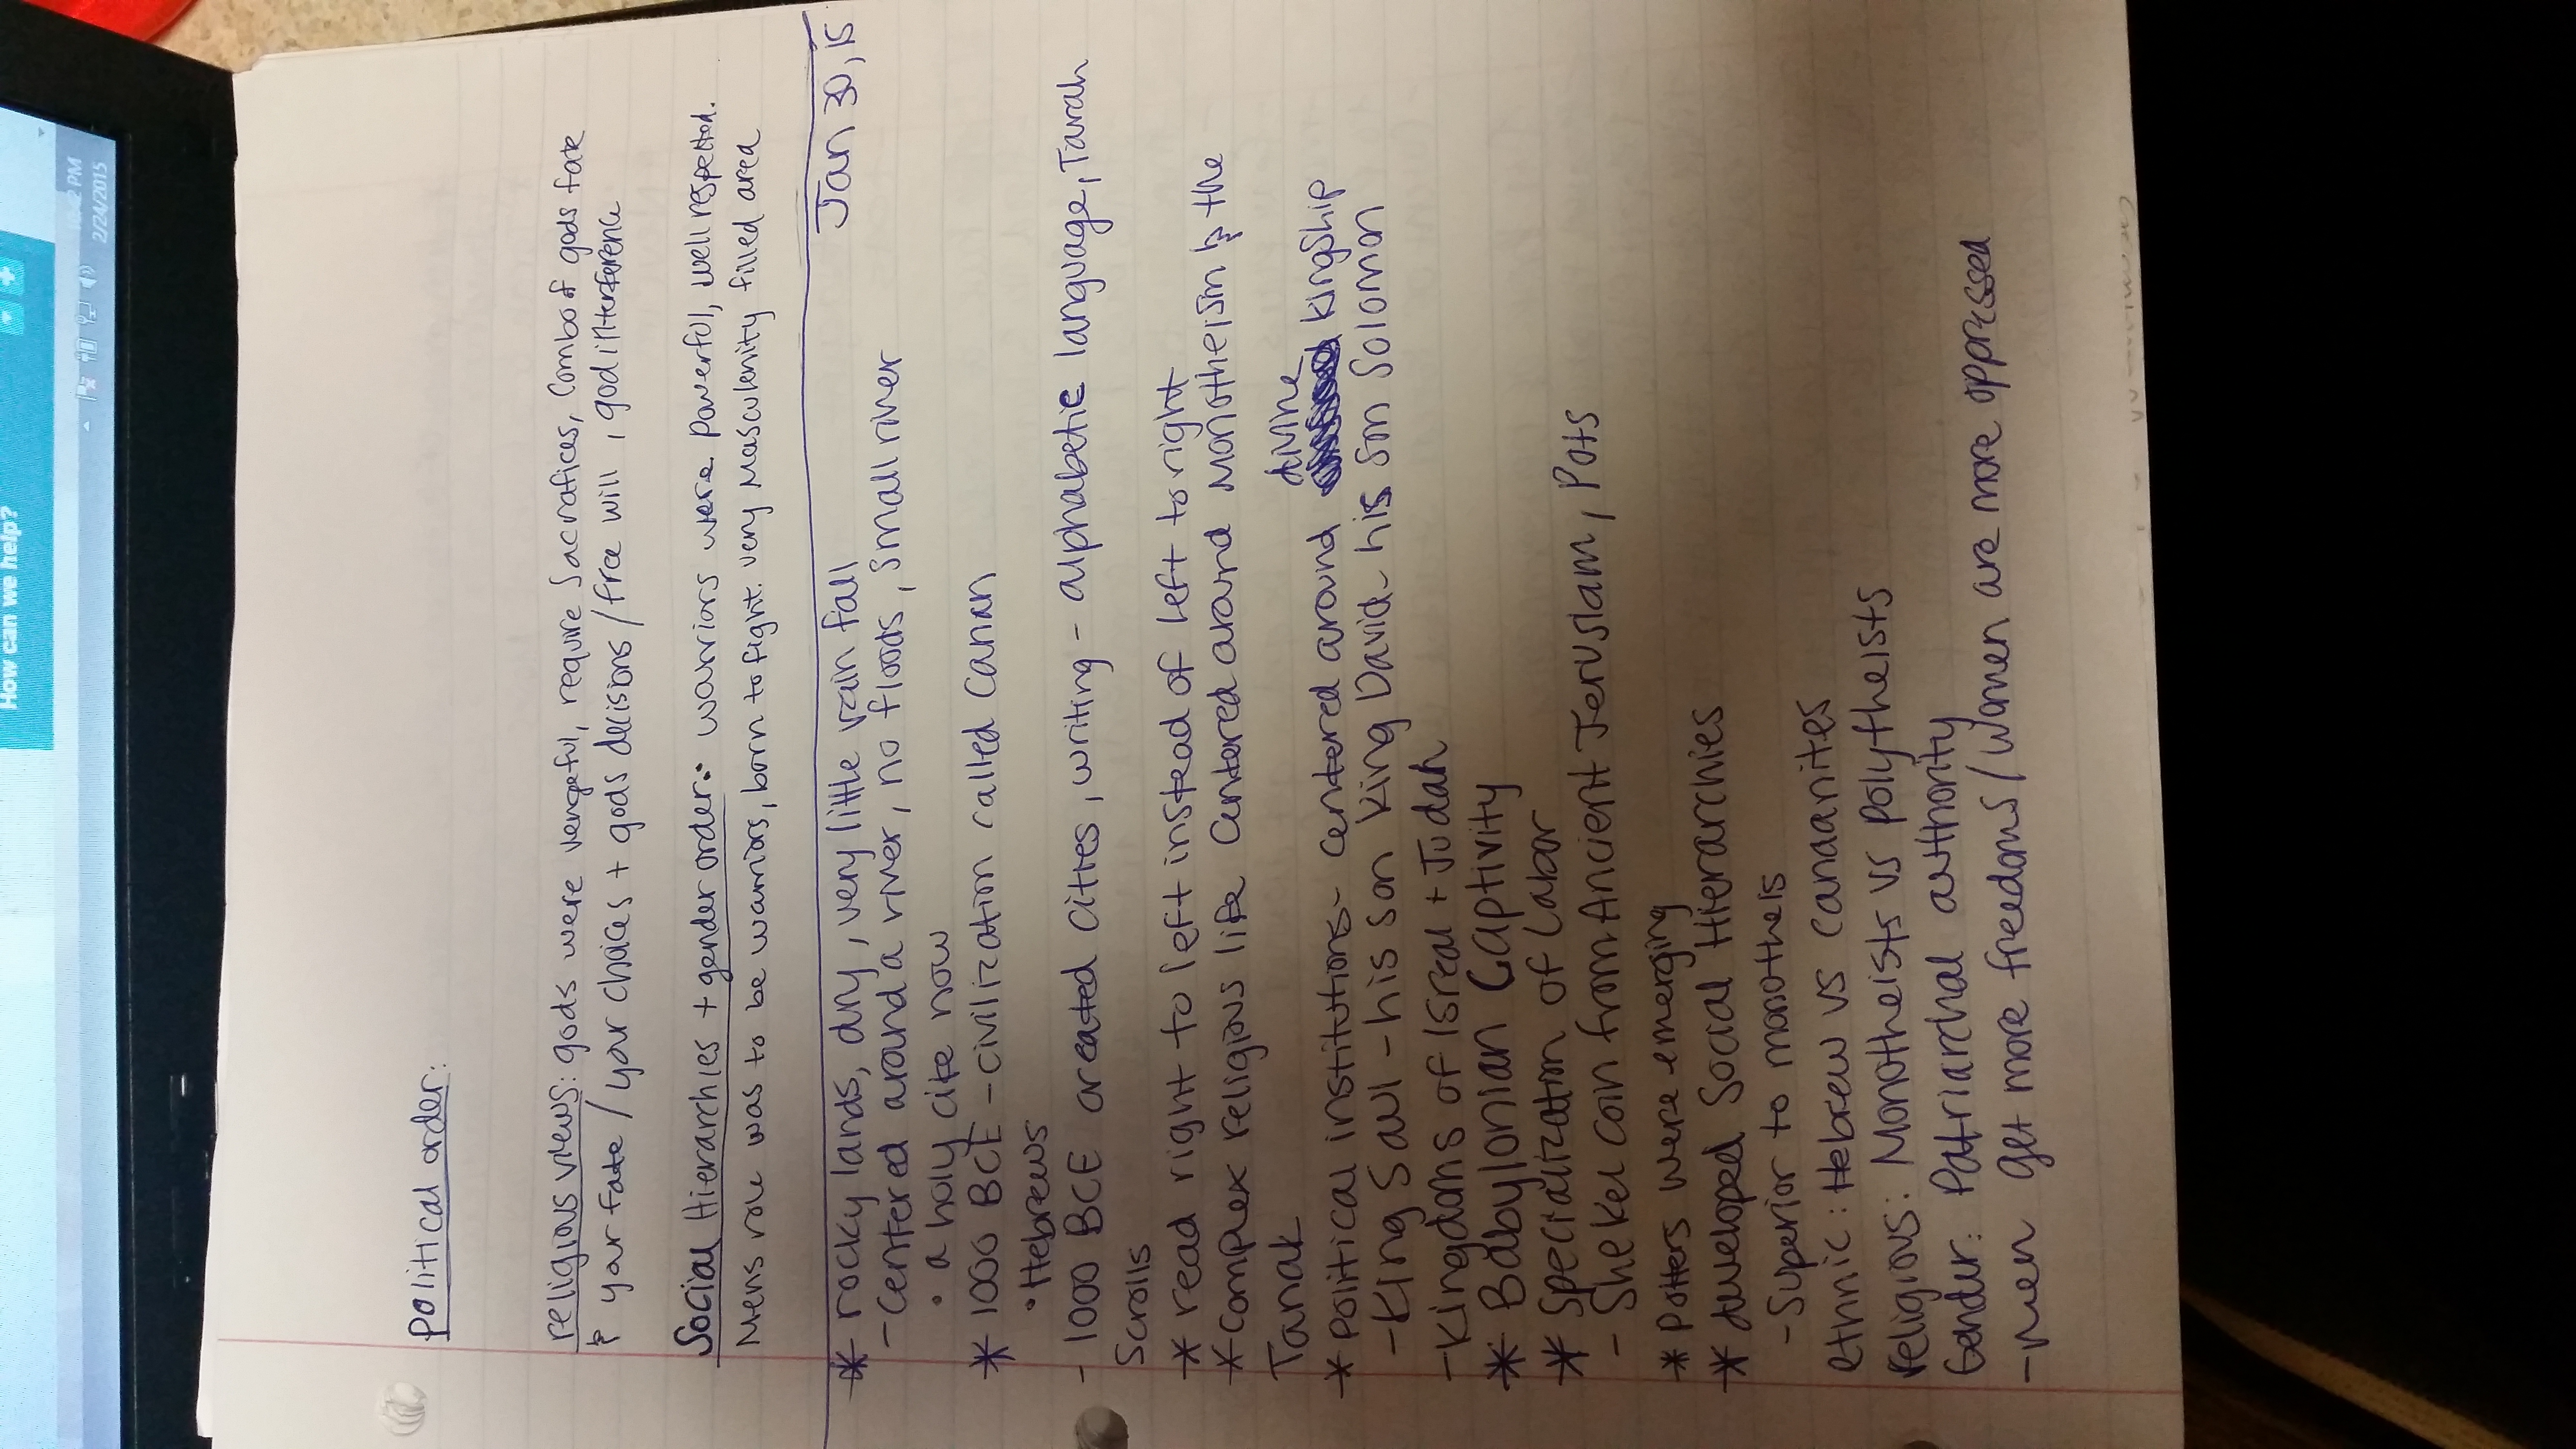 How can we help?
2 PM
2/24/2015
Political order:
religious views: gods were vengeful, require sacrafices, combo of gods fate
& your fate / your choices + gods decisions / free will, god interference
Social Hierarchies + gender order: warriors were powerful, well respected.
Mens role was to be warriors, born to fight. very masculenity filled area
Jan 30, 15
* rocky lands, dry, very little rain fall
- centered around a river, no floods, small river
• a holy cite now
* 1000 BCE - civilization called Canan
• Hebrews
- 1000 BCE created cities, writing - alphabetic language, Tarah
Scrolls
* read right to left instead of left to right
* complex religious life centered around Monotheism & the
Tanak
* political institutions - centered around divine kingship
- King Saul - his son King David - his son Solomon
- Kingdoms of Isreal + Judah
* Babylonian Captivity
* Specialization of Labor
- Shekel coin from Ancient Jeruslam, Pots
* Potters were emerging
* developed Social Hierarchies
- Superior to monotheis
ethnic: Hebrew vs Canaanites
religious: Monotheists vs Polytheists
Gender: Patriarchal authority
- men get more freedoms / women are more oppressed